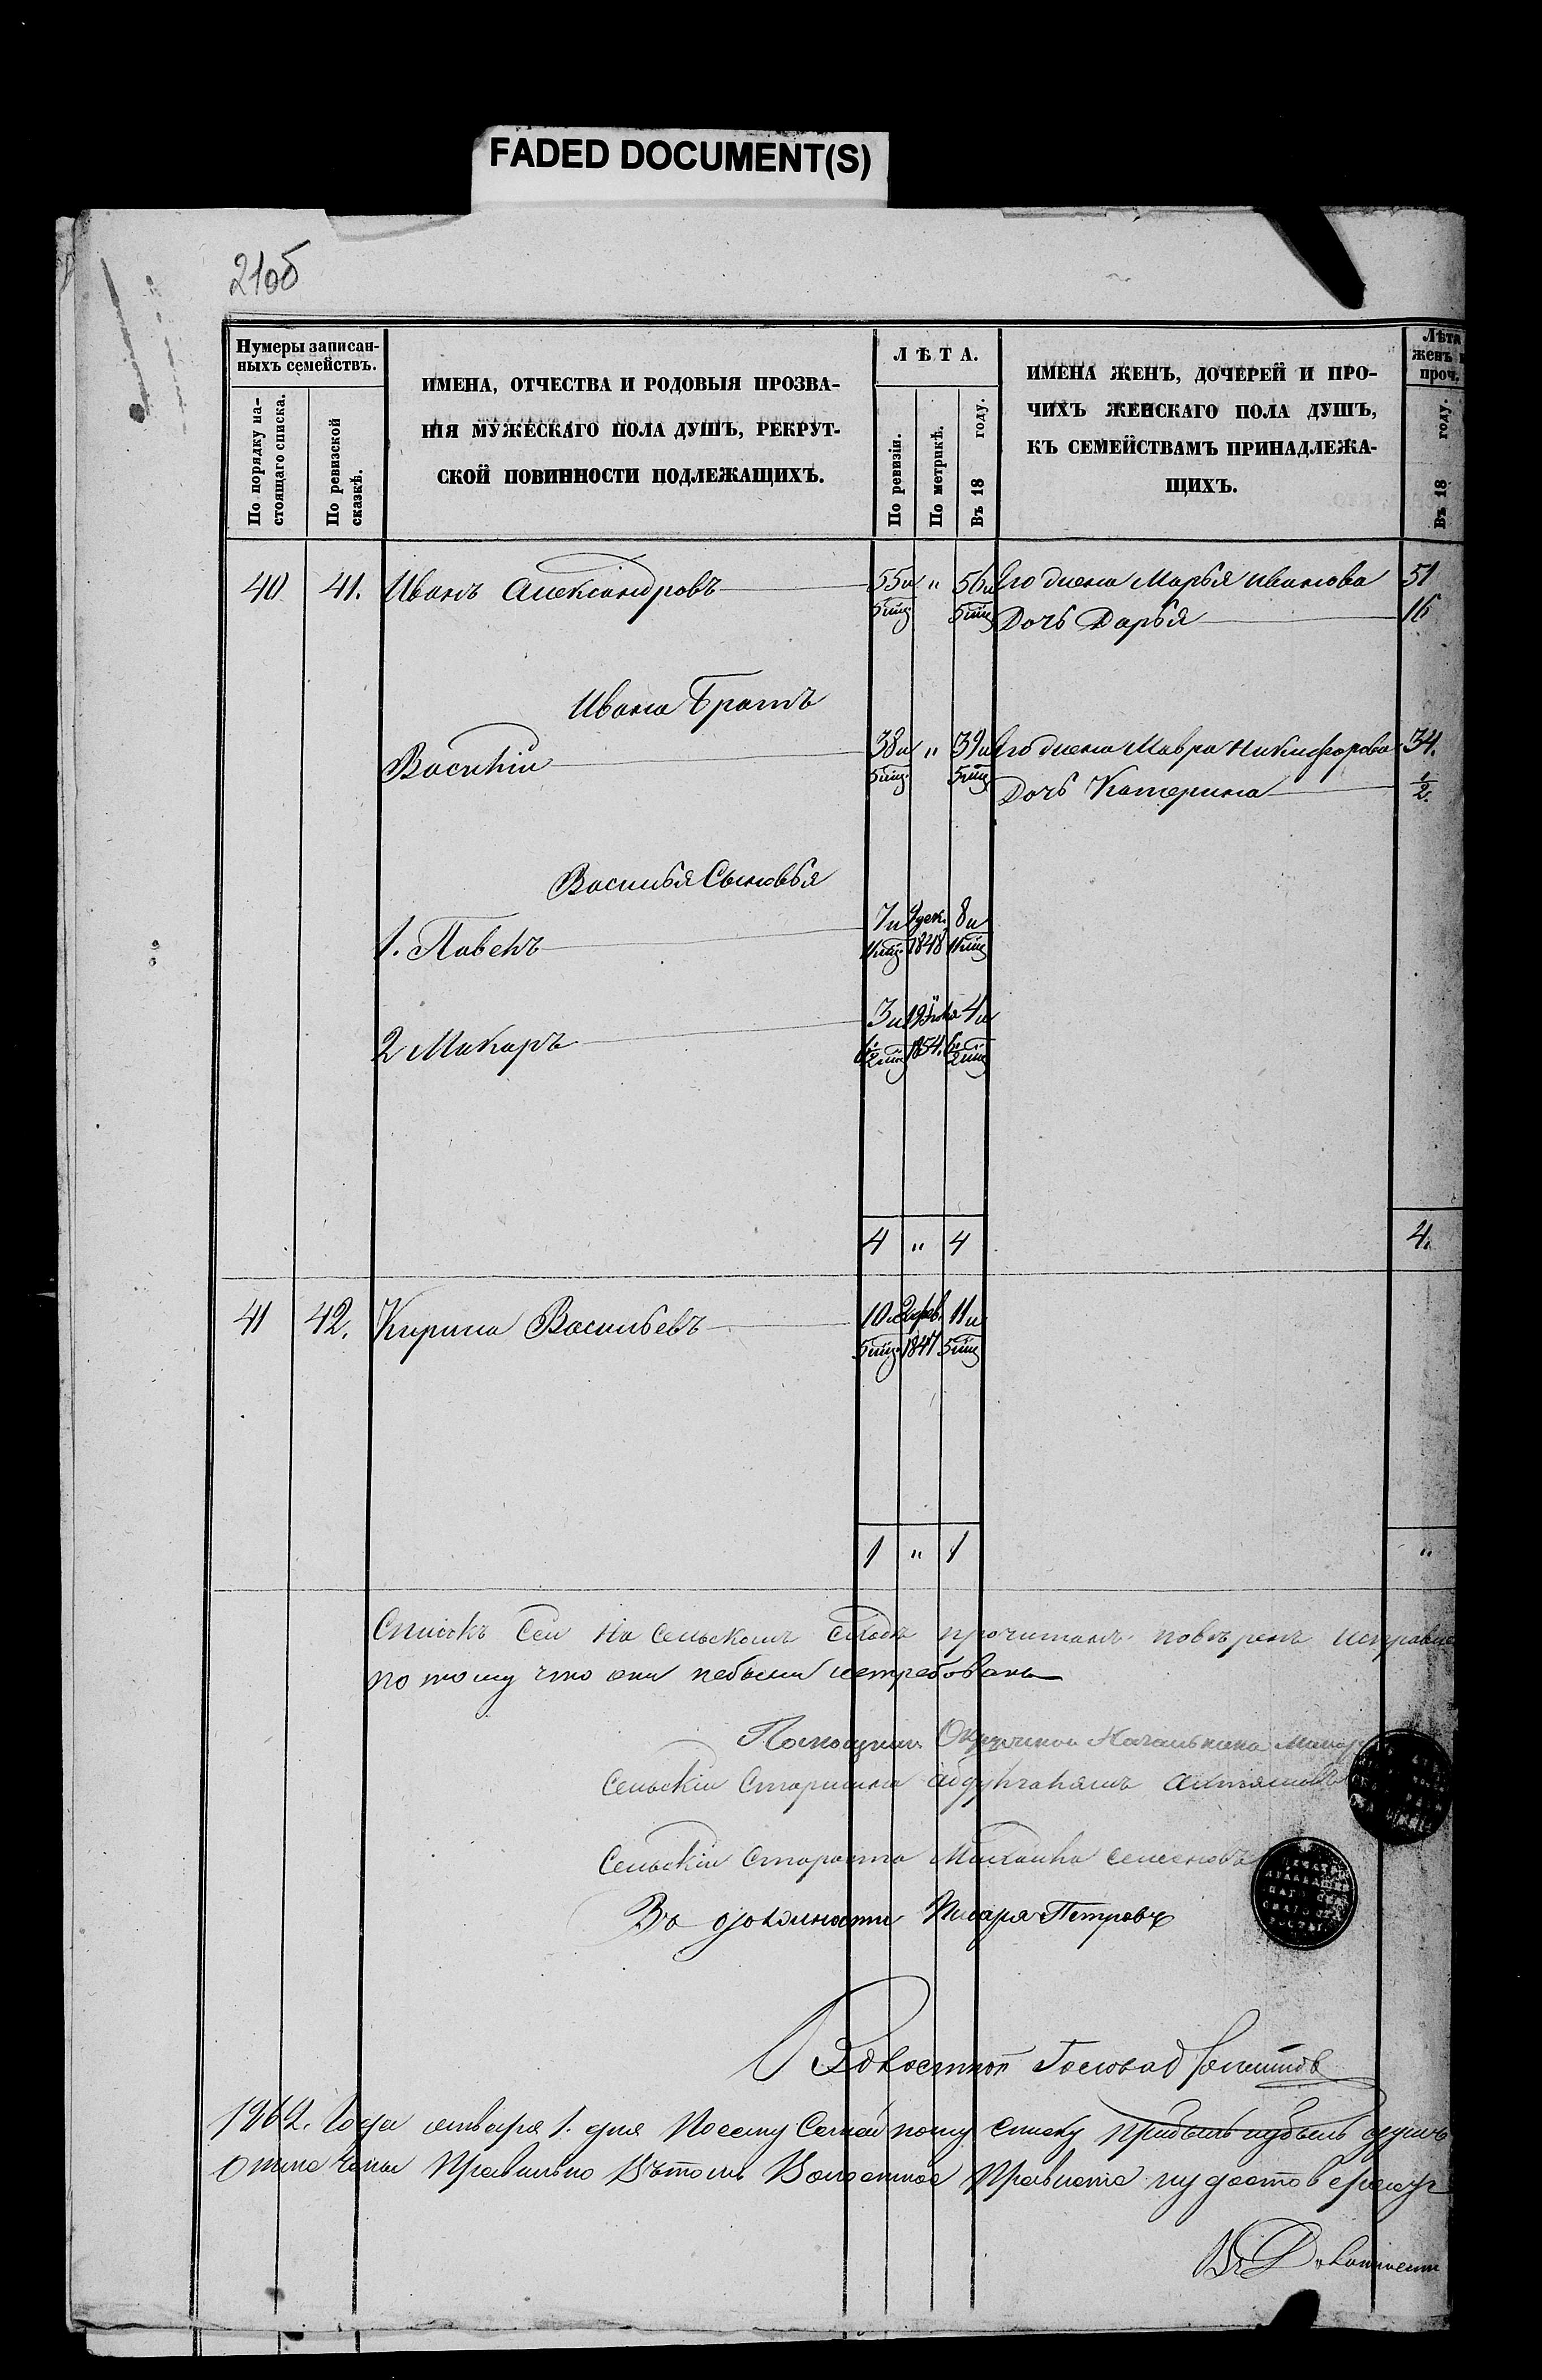 FADED DOCUMENT(S)
210б
Нумеры записан-
ныхъ семействъ.
По порядку на-
стоящаго списка.
По ревизской
сказкѣ.
ИМЕНА, ОТЧЕСТВА И РОДОВЫЯ ПРОЗВА-
НІЯ МУЖЕСКАГО ПОЛА ДУШЪ, РЕКРУТ-
СКОЙ ПОВИННОСТИ ПОДЛЕЖАЩИХЪ.
ЛѢТА.
По ревизіи.
По метрикѣ.
Въ 18 году.
ИМЕНА ЖЕНЪ, ДОЧЕРЕЙ И ПРО-
ЧИХЪ ЖЕНСКАГО ПОЛА ДУШЪ,
КЪ СЕМЕЙСТВАМЪ ПРИНАДЛЕЖА-
ЩИХЪ.
Лѣта
женъ и
проч.
Въ 18 году.
40 41. Иванъ Александровъ 55и " 56и Его жена Марья Иванова 51
5мц 5мц Дочь Дарья 16
Ивана Братъ
Василій 38и " 39и Его жена Мавра Никифорова 34.
5мц 5мц Дочь Катерина 1/2.
Василья Сыновья
1. Павелъ 7и 9дек. 8и
11мц 1848 11мц
2 Макаръ 3и 19 Іюля 4и
1854.
4 " 4 4.
41 42. Кирила Васильевъ 10и фев. 11и
5мц 1847 5мц
1 " 1 "
Списокъ Сей на сельскомъ сходѣ прочитанъ повѣренъ
по тому что они небыли истребованы
Помощник Окружнои Началника
Сельскіи Старшина
Сельскіи Староста Михаила Семеновъ
Въ должности Писаря Петровъ
Волостной Голова
1862. Года января 1. дня Посему Семейному списку прибыль и убыль душъ
Отмечены Правильно Вътомъ Волостное Правление
Въ Должности